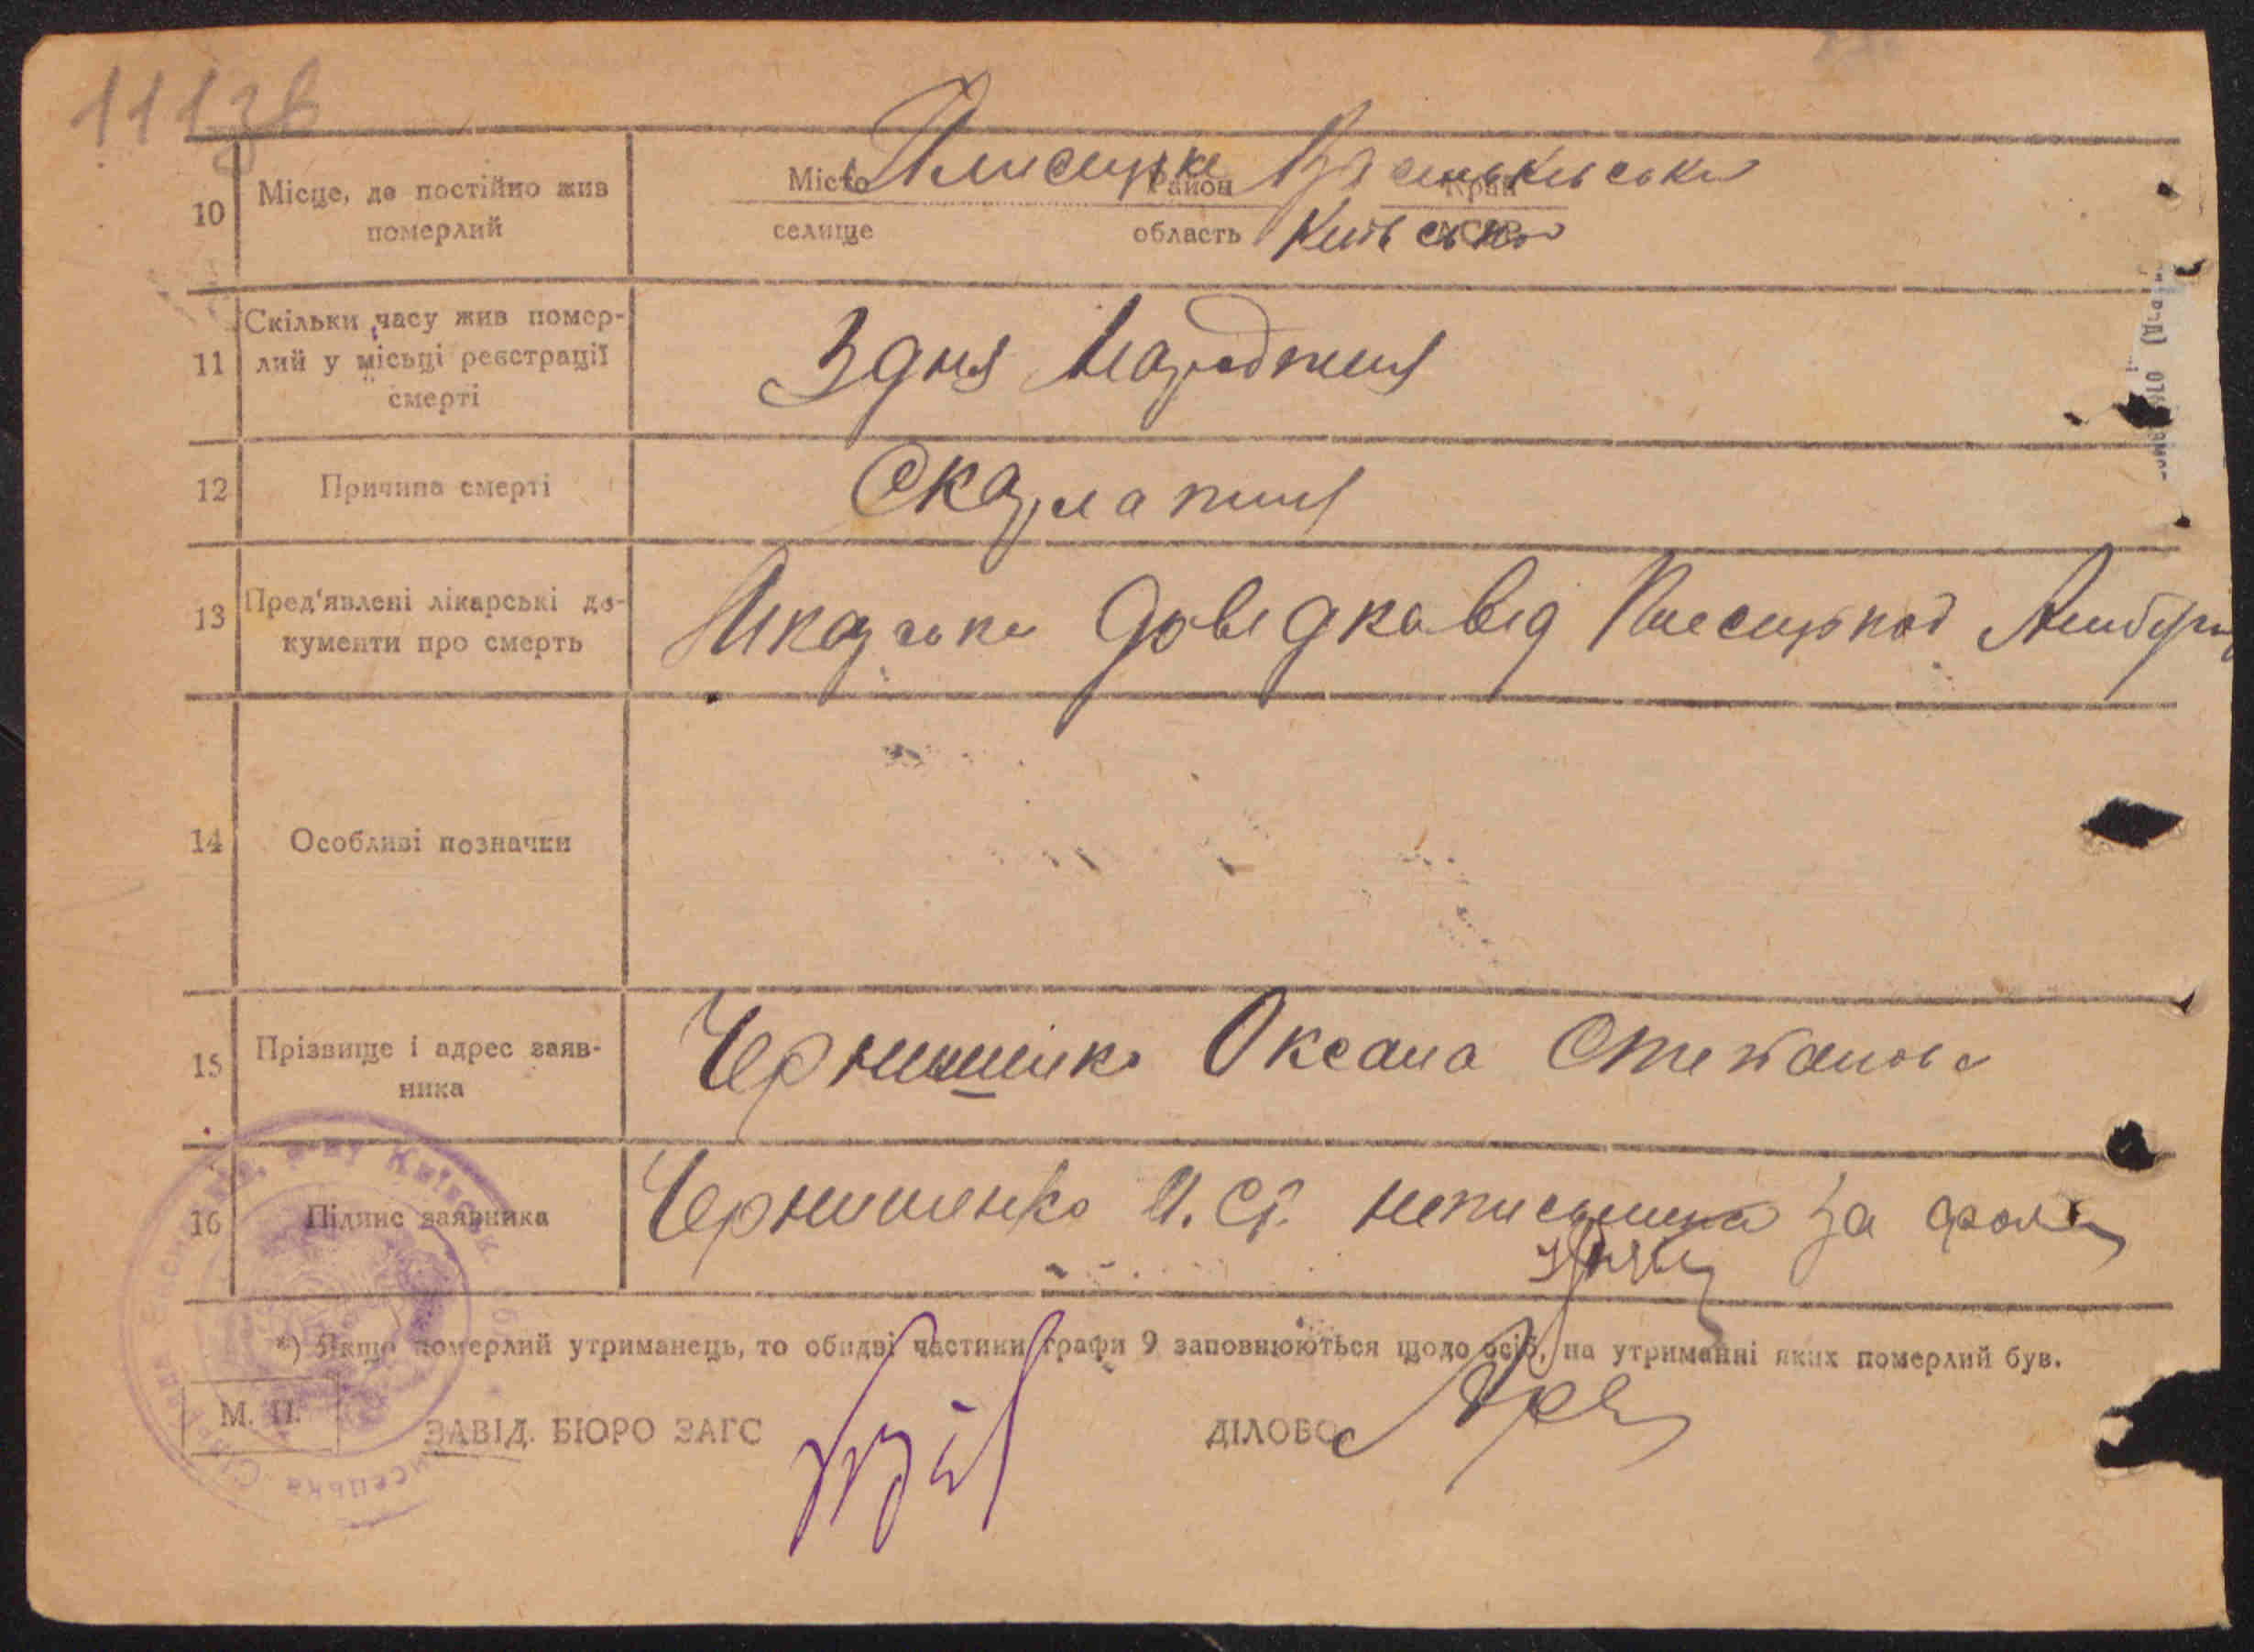 10 Місце, де постійно жив померлий
Місто Плисецьке Район Край
селище область Київська АСРР
11 Скільки часу жив помер-
лий у місьці реєстрації
смерті
З дня народження
12 Причина смерті Скарлатина
13 Пред'явлені лікарські до-
кументи про смерть
Лікарська довідка від Плисецької
14 Особливі позначки
15 Прізвище і адрес заяв-
ника
Чернишенко Оксана Степанов
16 Підпис заявника Чернишенко неписьменна за
*) Якщо померлий утриманець, то обидві частини графи 9 заповнюються щодо осіб, на утриманні яких померлий був.
М. П.
ЗАВІД. БЮРО ЗАГС ДІЛОВО